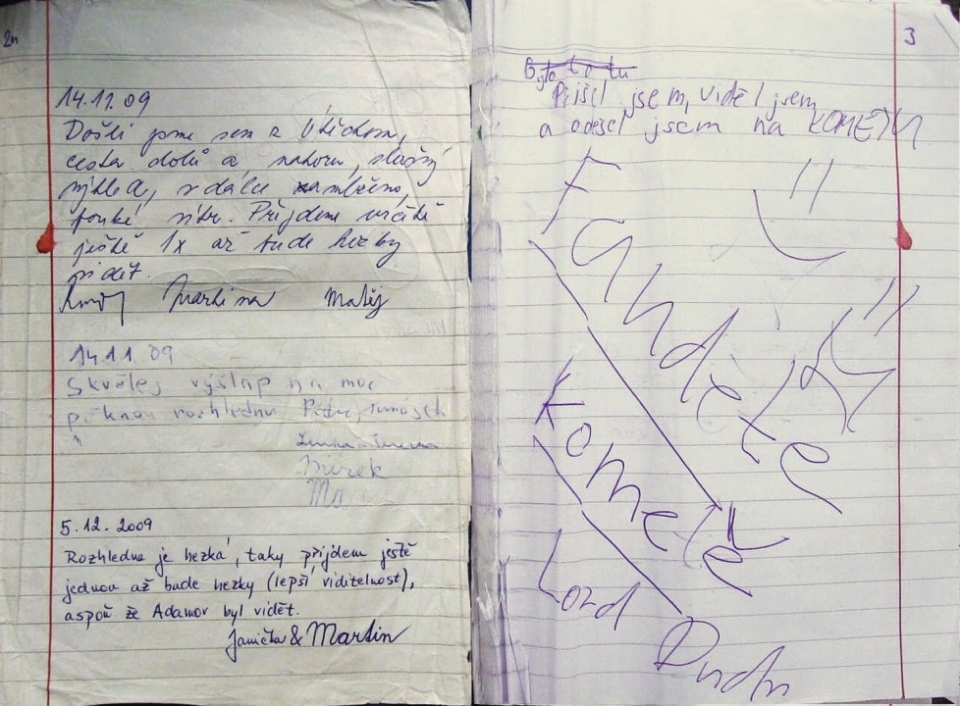 2n
14.11.09
Došli jsme sem z Útěchova,
cesta dolů a nahoru, slušný
výhled, v dálce zamlženo,
fouká vítr. Přijdem určitě
ještě 1x až bude hezky
vidět.
Martina Matěj
14.11.09
Skvělej výšlap na moc
pěknou rozhlednu
Mirek
5.12.2009
Rozhledna je hezká, taky přijdem ještě
jednou až bude hezky (lepší viditelnost),
aspoň že Adamov byl vidět.
Janička & Martin
3
Bylo to tu
Přišel jsem, viděl jsem
a odešel jsem na KOMETU
Fanděte
Kometě
Lord